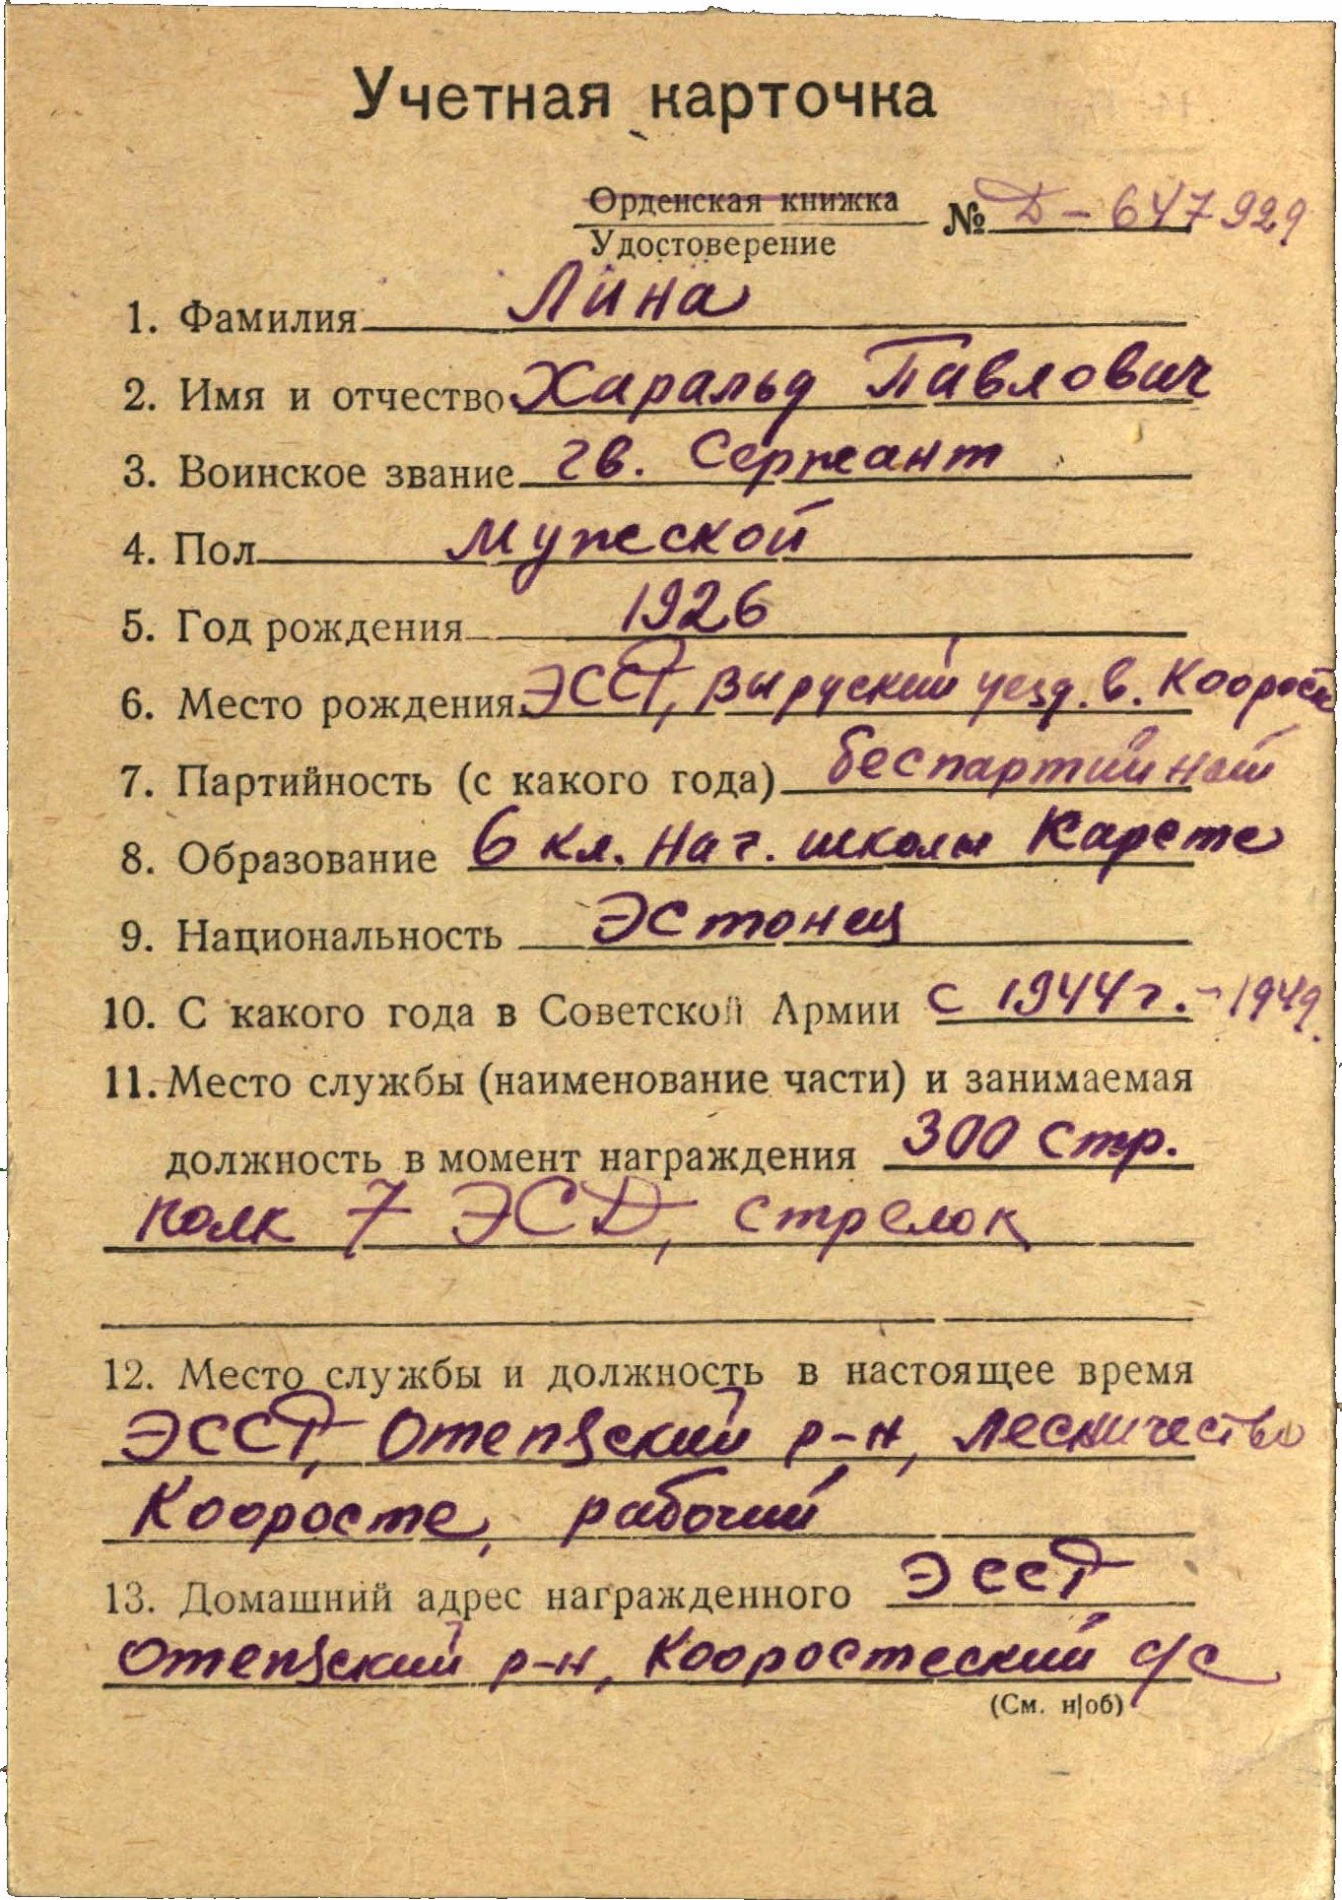 Учетная карточка
Орденская книжка
Удостоверение
№ Д-647929
1. Фамилия Лина
2. Имя и отчество Харальд Павлович
3. Воинское звание гв. Сержант
4. Пол мужской
5. Год рождения 1926
6. Место рождения ЭССР, Выруский уезд. в. Коорасте
7. Партийность (с какого года) беспартийный
8. Образование 6 кл. нач. школы Карсте
9. Национальность Эстонец
10. С какого года в Советской Армии с 1944 г. - 1949.
11. Место службы (наименование части) и занимаемая
должность в момент награждения 300 стр.
полк 7 ЭСД, стрелок
12. Место службы и должность в настоящее время
ЭССР, Отепяский р-н, лесничество
Кооросте, рабочий
13. Домашний адрес награжденного ЭССР
Отепяский р-н, Кооростеский с/с
(См. н|об)